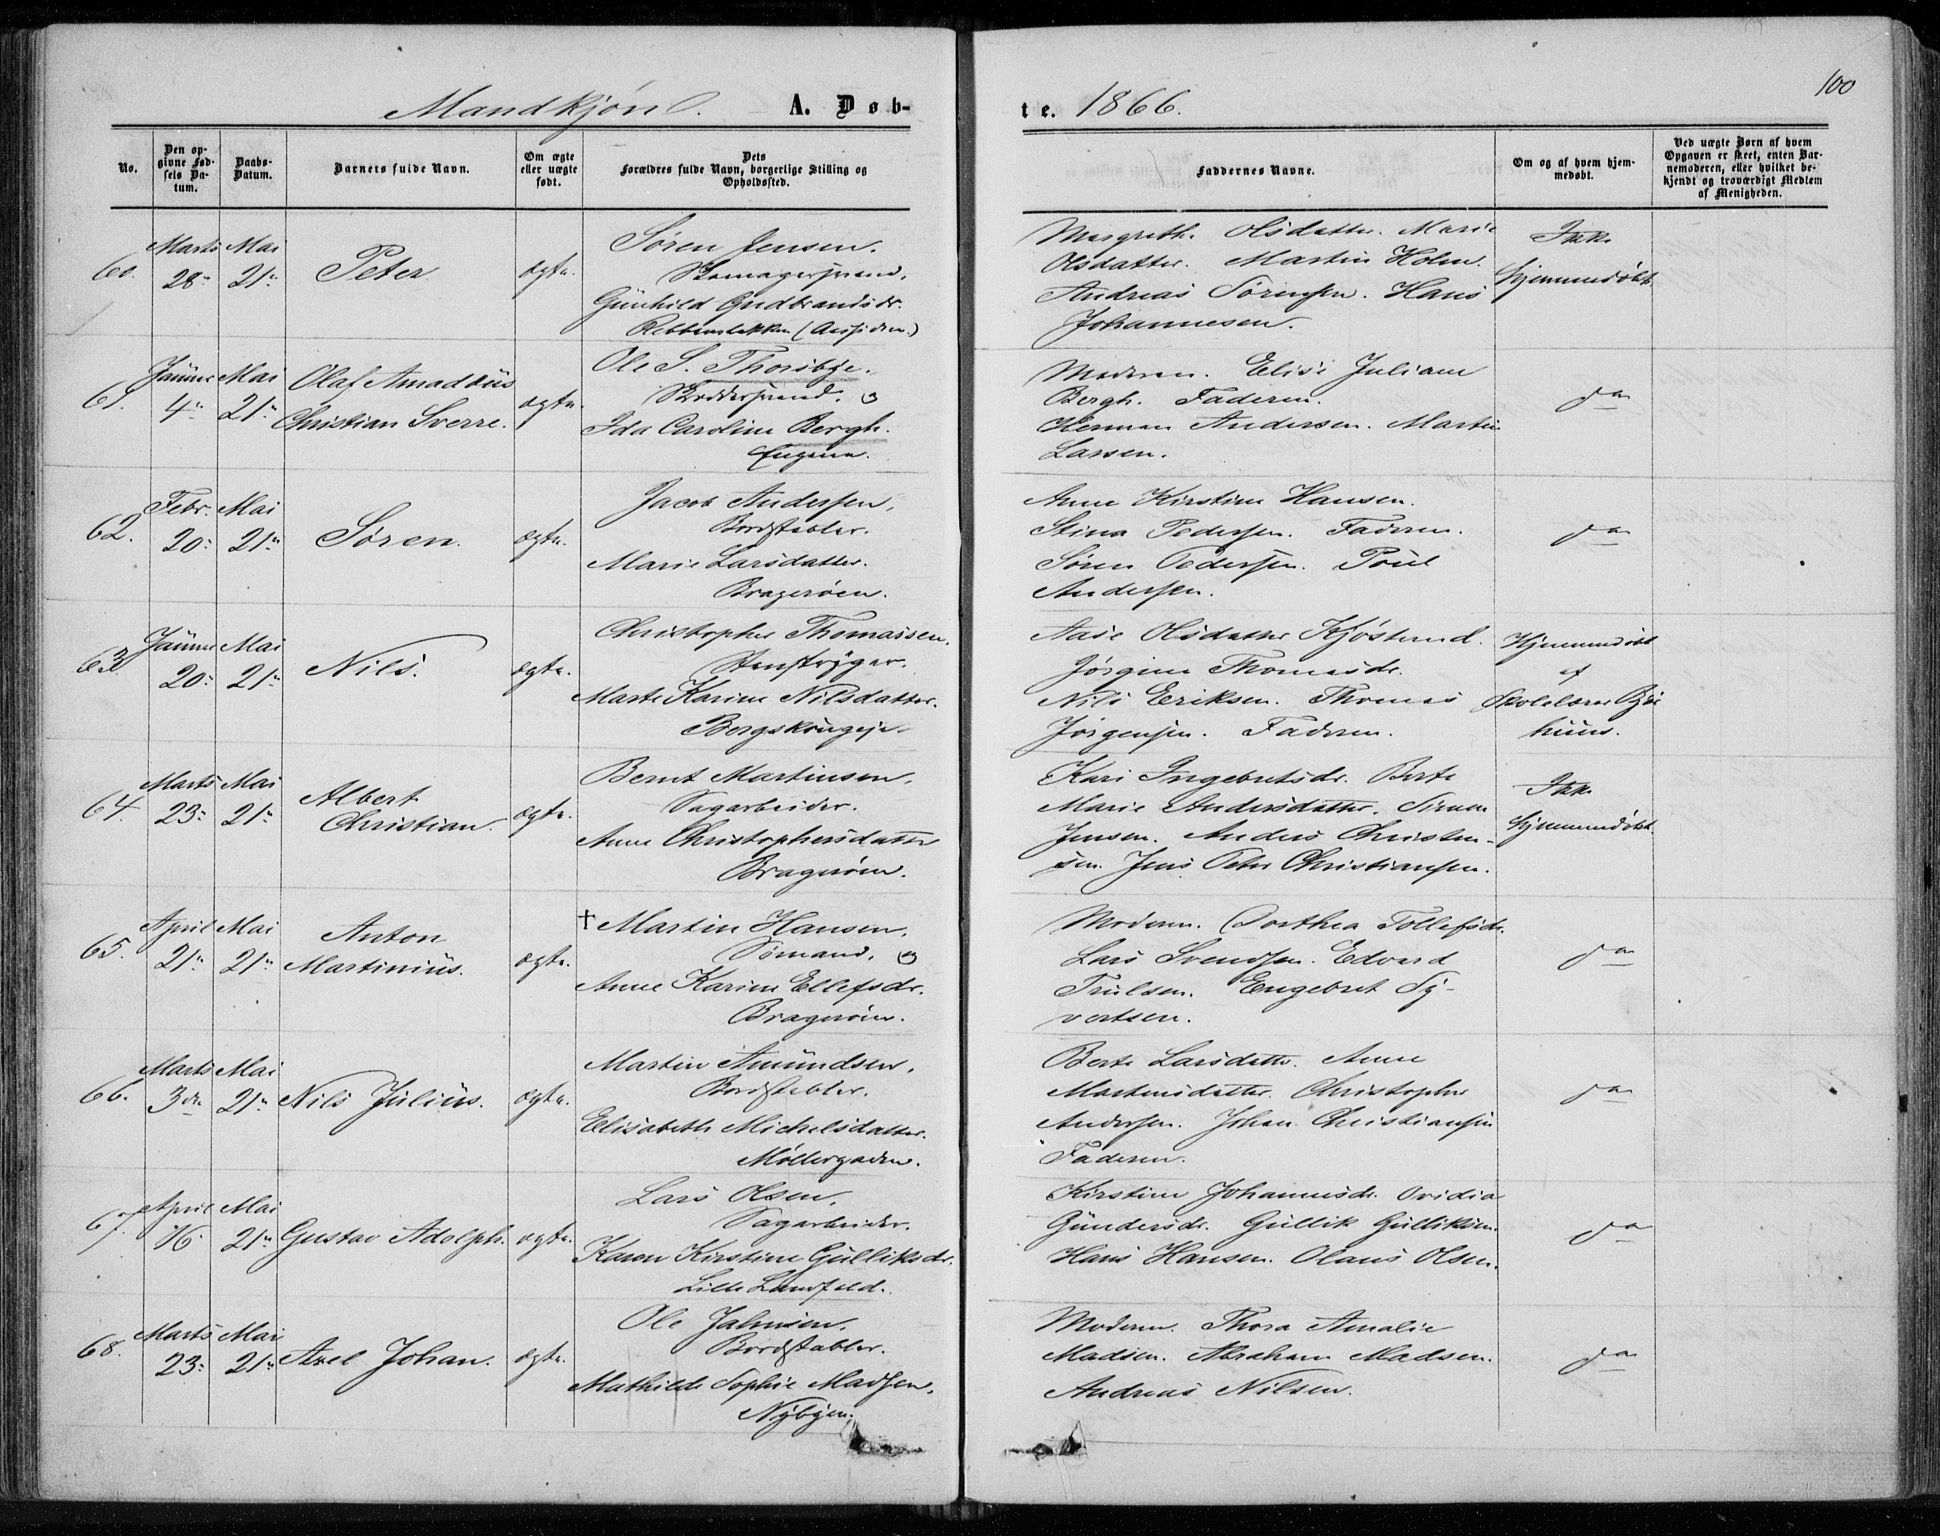 Mandkjøn. A. Døb-
te. 1866.
100
No.
Den opgivne Fødsels Datum.
Daabs-Datum.
Barnets fulde Navn.
Om ægte eller uægte født.
Dets Forældres fulde Navn, borgerlige Stilling og Opholdssted.
Faddernes Navne.
Om og af hvem hjemmedøbt.
Ved uægte Børn af hvem Opgaven er skeet, enten Barnemoderen, eller hvilket bekjendt og troværdigt Medlem af Menigheden.
60. Marts 28 Mai 21 Peter ægte.
Søren Jensen.
Skomagersvend.
Günhild Gudbrandsdr.
Margrethe Olsdatter. Marie
Olsdatter. Martin Holm.
Andreas Sørensen. Hans
Johannesen.
Ikke
hjemmedøbt.
61. Januar 4 Mai 21 Olaf Amadeüs
Christian Sverre. ægte.
Ole S. Thorsbye.
Ida Caroline Bergh.
Engene.
Moderen. Elise Juliane
Bergh. Faderen.
Herman Andersen. Martin
Larsen.
do
62. Febr. 20 Mai 21 Søren. ægte.
Jacob Andersen,
Bordstabler.
Marie Larsdatter.
Bragerøen.
Anne Kirstine Hansen.
Stina Pedersen. Faderen.
Søren Pedersen. Poül
Andersen.
do
63. Januar 20 Mai 21 Nils. ægte.
Christopher Thomassen.
Marte Karine Nilsdatter.
Aase Olsdatter
Jørgine Thomasdr.
Nils Eriksen. Thomas
Jørgensen. Faderen.
Hjemmedøbt
af
Skolelærer
64. Marts 23 Mai 21 Albert
Christian. ægte.
Bernt Martinsen.
Sagarbeider.
Anne Christophersdatter
Bragerøen.
Kari Ingebretsdr. Berte
Marie Andersdatter. Simen
Jensen. Anders Christen-
sen. Jens Peter Christiansen.
Ikke
hjemmedøbt.
65. April 21 Mai 21 Anton
Martiniüs. ægte.
† Martin Hansen.
Sømand.
Anne Karine Ellefsdr.
Bragerøen.
Moderen. Dorthea Tollefsdr.
Lars Svendsen. Edvard
Trülsen. Engebret Sy-
vertsen.
do
66. Marts 3die Mai 21 Nils Jüliüs. ægte.
Martin Amündsen.
Bordstabler.
Elisabeth Michelsdatter.
Møllergaden.
Berte Larsdatter. Anne
Martinsdatter. Christopher
Andersen. Johan Christiansen
Faderen.
do
67. April 16 Mai 21 Gustav Adolph. ægte.
Lars Olsen.
Sagarbeider.
Karen Kirstine Gülliksdr.
Lille Landfald.
Kirstine Johannesdr. Ovidia
Gündersdr. Güllik Gülliksen.
Hans Hansen. Olaus Olsen.
do
68. Marts 23 Mai 21 Axel Johan. ægte.
Ole Jahnsen.
Bordstabler.
Mathilde Sophie Madsen.
Nybyen.
Moderen. Thora Amalie
Madsen. Abraham Madsen.
Andreas Nilsen.
do